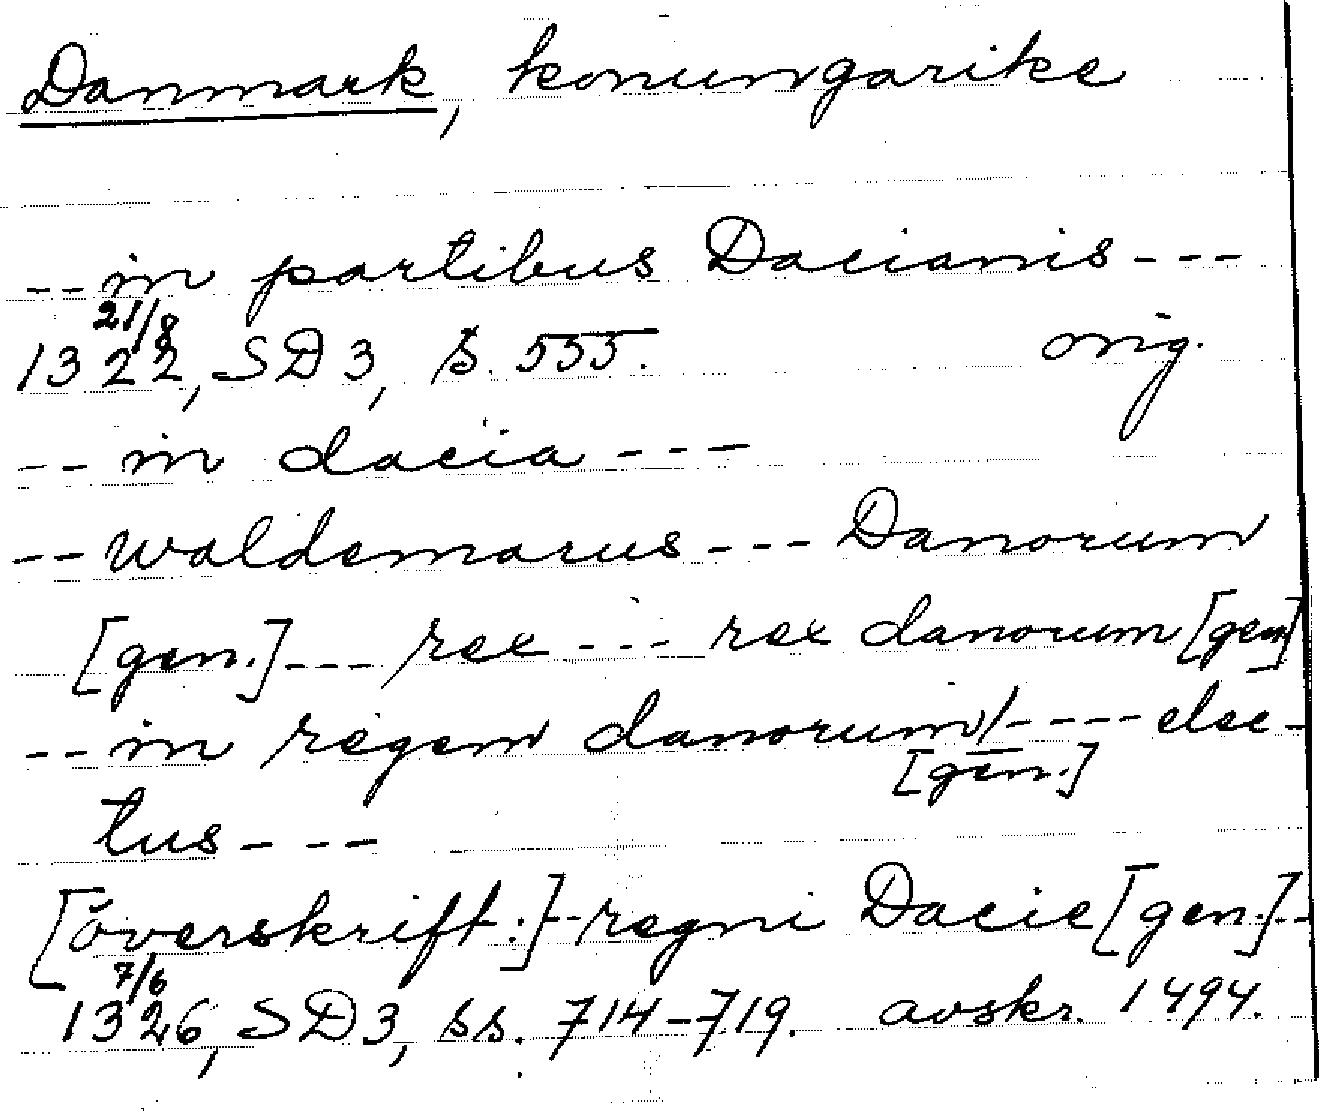 Danmark, konungarike
-- in partibus Dacianis ---
21/8
1322, SD 3, s. 555. orig.
-- in dacia ---
-- waldemarus --- Danorum
[gen.] --- rex --- rex danorum [gen]
-- in regem danorum/ ---- elec-
[gen.]
tus ---
[överskrift:] - regni Dacie [gen.] --
7/6
1326, SD3, ss. 714-719. avskr. 1494.